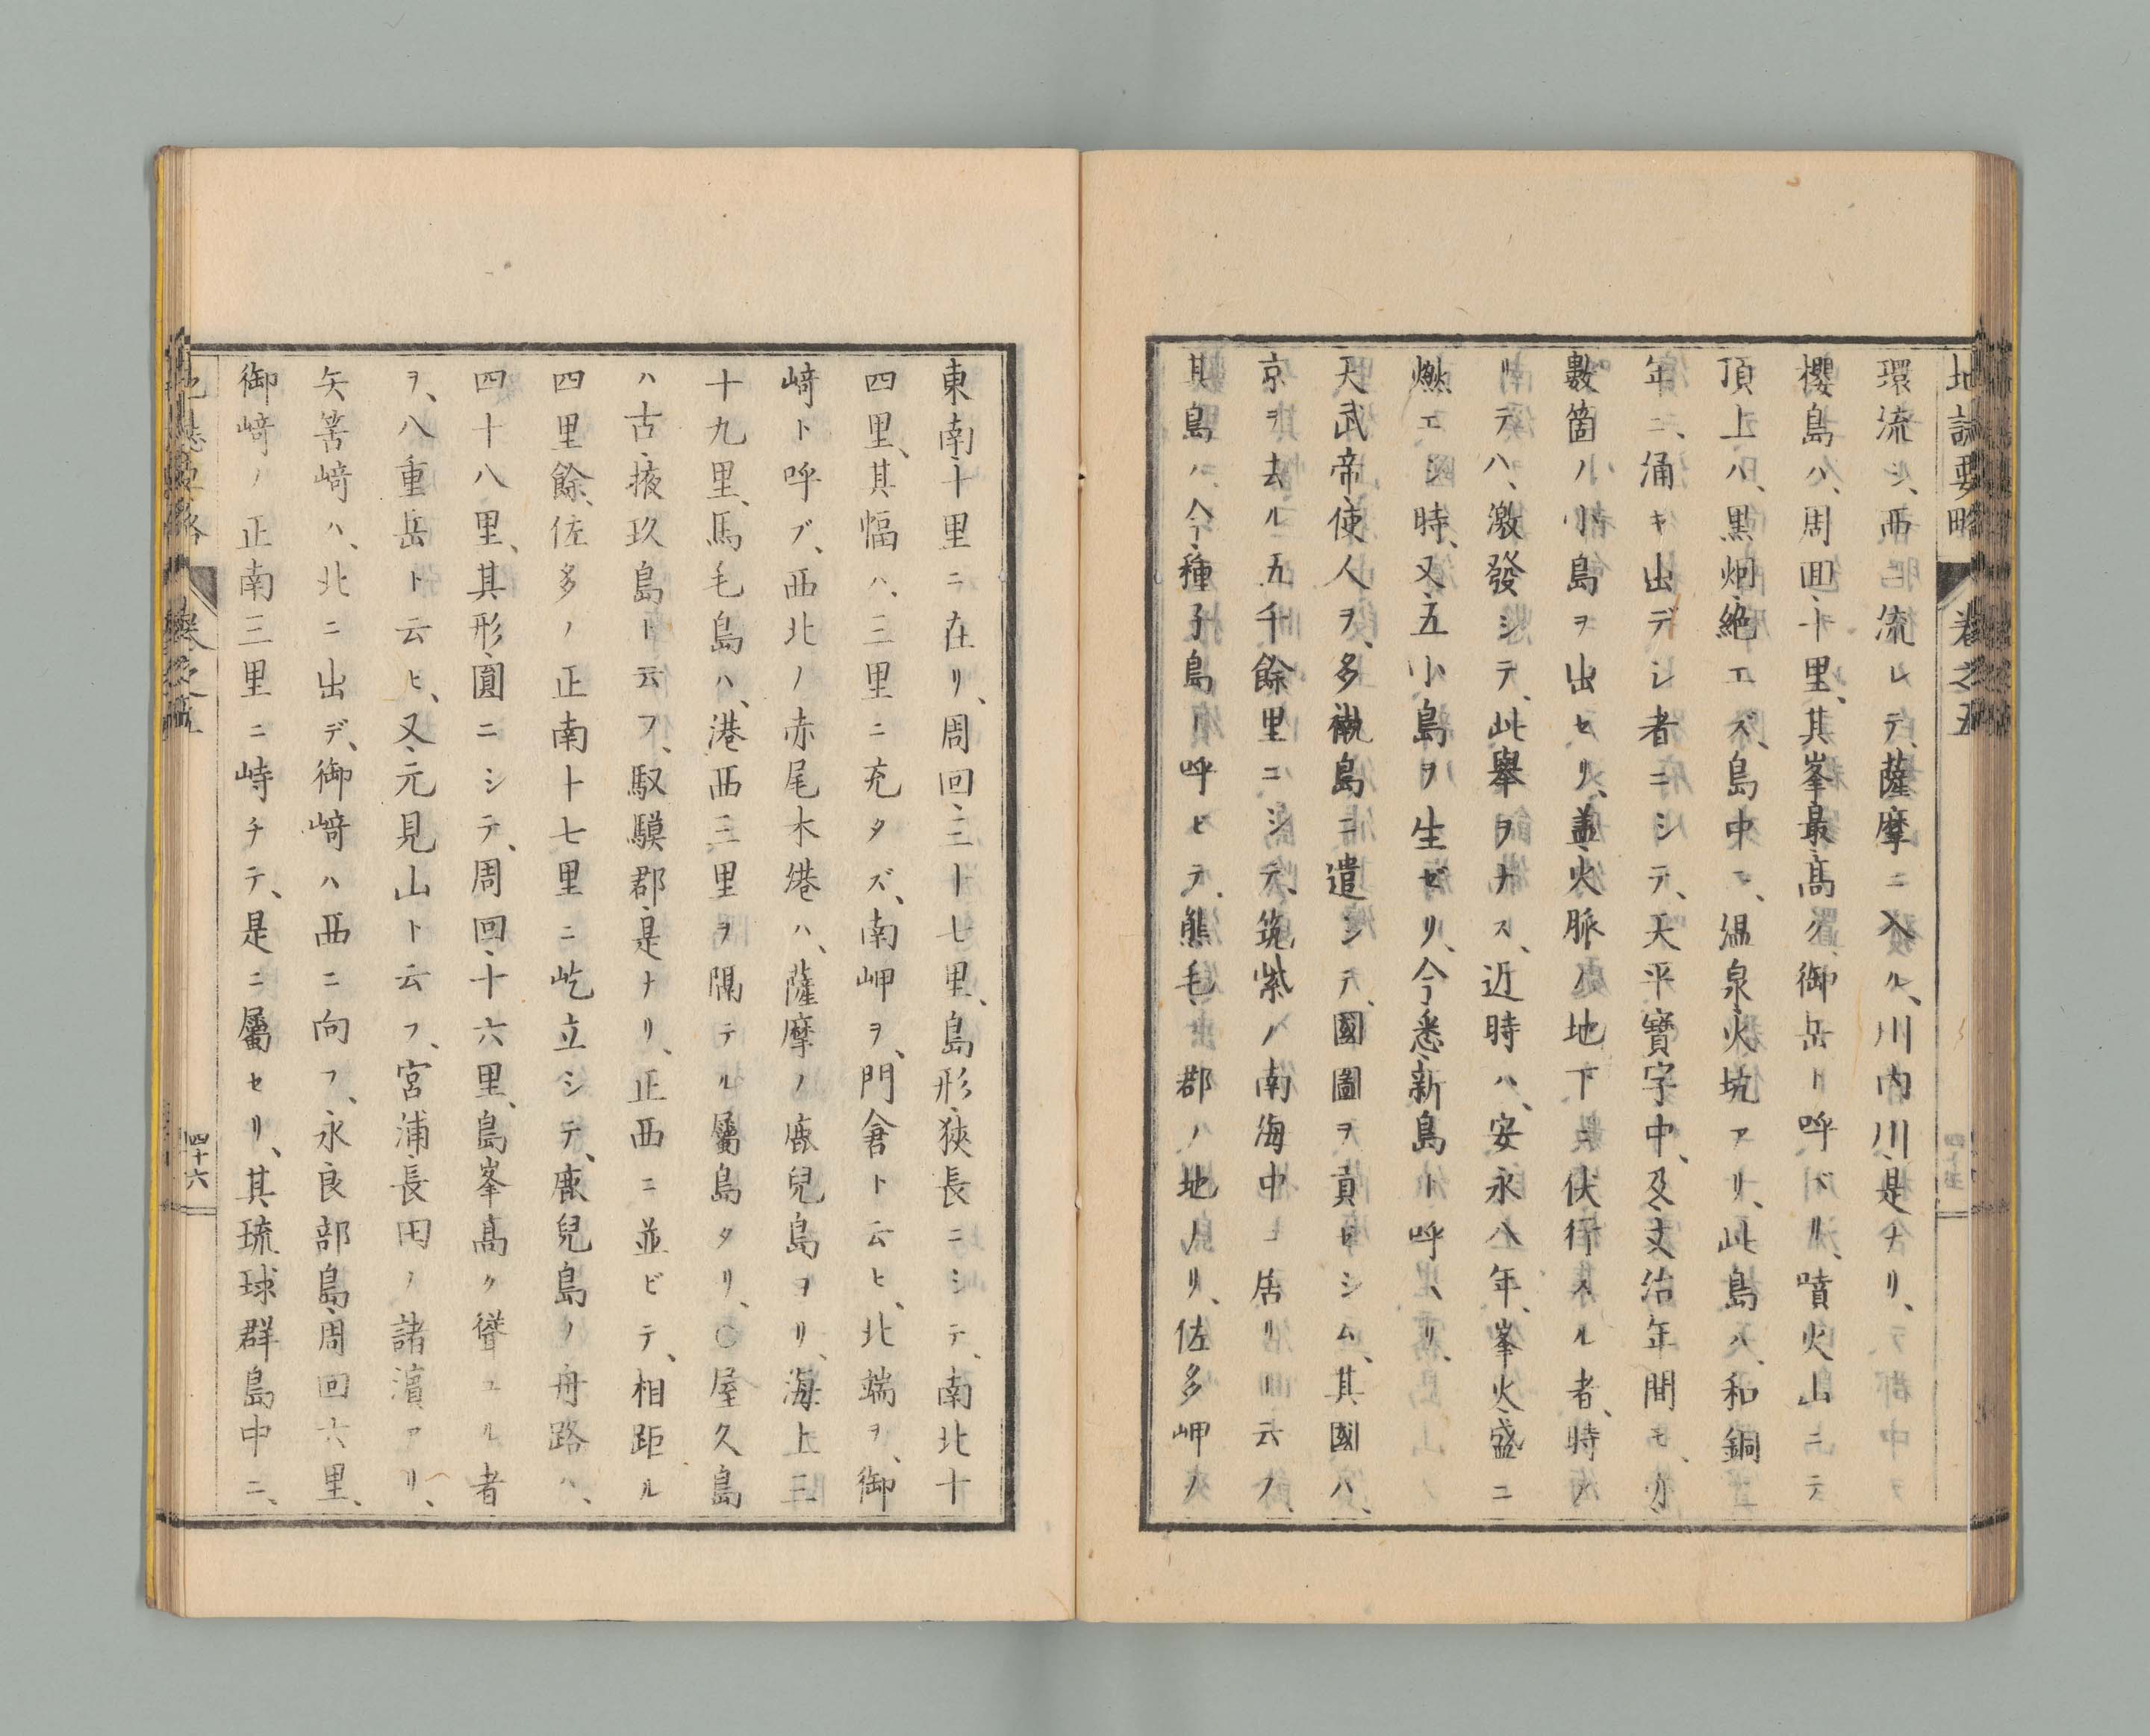 地誌要略 卷之五
環流シ、西流レテ、薩摩ニ入ル、川内川是ナリ、
櫻島ハ、周囬十里、其峯最高ク、御岳ト呼ベリ、噴火山ニテ
頂上ハ、黒烟絶エズ、島中ニ、溫泉火坑アリ、此島ハ、和銅
年ニ、涌キ出デシ者ニシテ、天平寶字中、及文治年間モ、亦
數箇ノ小島ヲ出セリ、盖火脈ノ地下ニ伏行スル者、時ア
リテハ、激發シテ、此擧ヲナス、近時ハ、安永八年、峯火盛ニ
燃エシ時、又五小島ヲ生ゼリ、今悉新島ト呼ヘリ、
天武帝、使人ヲ、多禰島ニ遣シテ、國圖ヲ貢ヒシム、其國ハ、
京ヲ去ル五千餘里ニシテ、筑紫ノ南海中ニ居リト云フ、
其島ハ、今種子島ト呼ヒテ、熊毛郡ノ地ナリ、佐多岬ノ
東南十里ニ在リ、周回三十七里、島形狹長ニシテ、南北十
四里、其幅ハ、三里ニ充タズ、南岬ヲ、門倉ト云ヒ、北端ヲ、御
﨑ト呼ブ、西北ノ赤尾木港ハ、薩摩ノ鹿兒島ヨリ、海上三
十九里、馬毛島ハ、港西三里ヲ隔テル屬島タリ、〇屋久島
ハ古掖玖島ト云フ、馭驥郡是ナリ、正西ニ並ビテ、相距ル
四里餘、佐多ノ正南十七里ニ屹立シテ、鹿兒島ノ舟路ハ、
四十八里、其形圓ニシテ、周回十六里、島峯高ク聳ユル者
ヲ、八重岳ト云ヒ、又元見山ト云フ、宮浦長田ノ諸濵アリ、
矢筈﨑ハ、北ニ出デ、御﨑ハ西ニ向フ、永良部島周回六里、
御﨑ノ正南三里ニ峙チテ、是ニ屬セリ、其琉球群島中ニ、
四十六